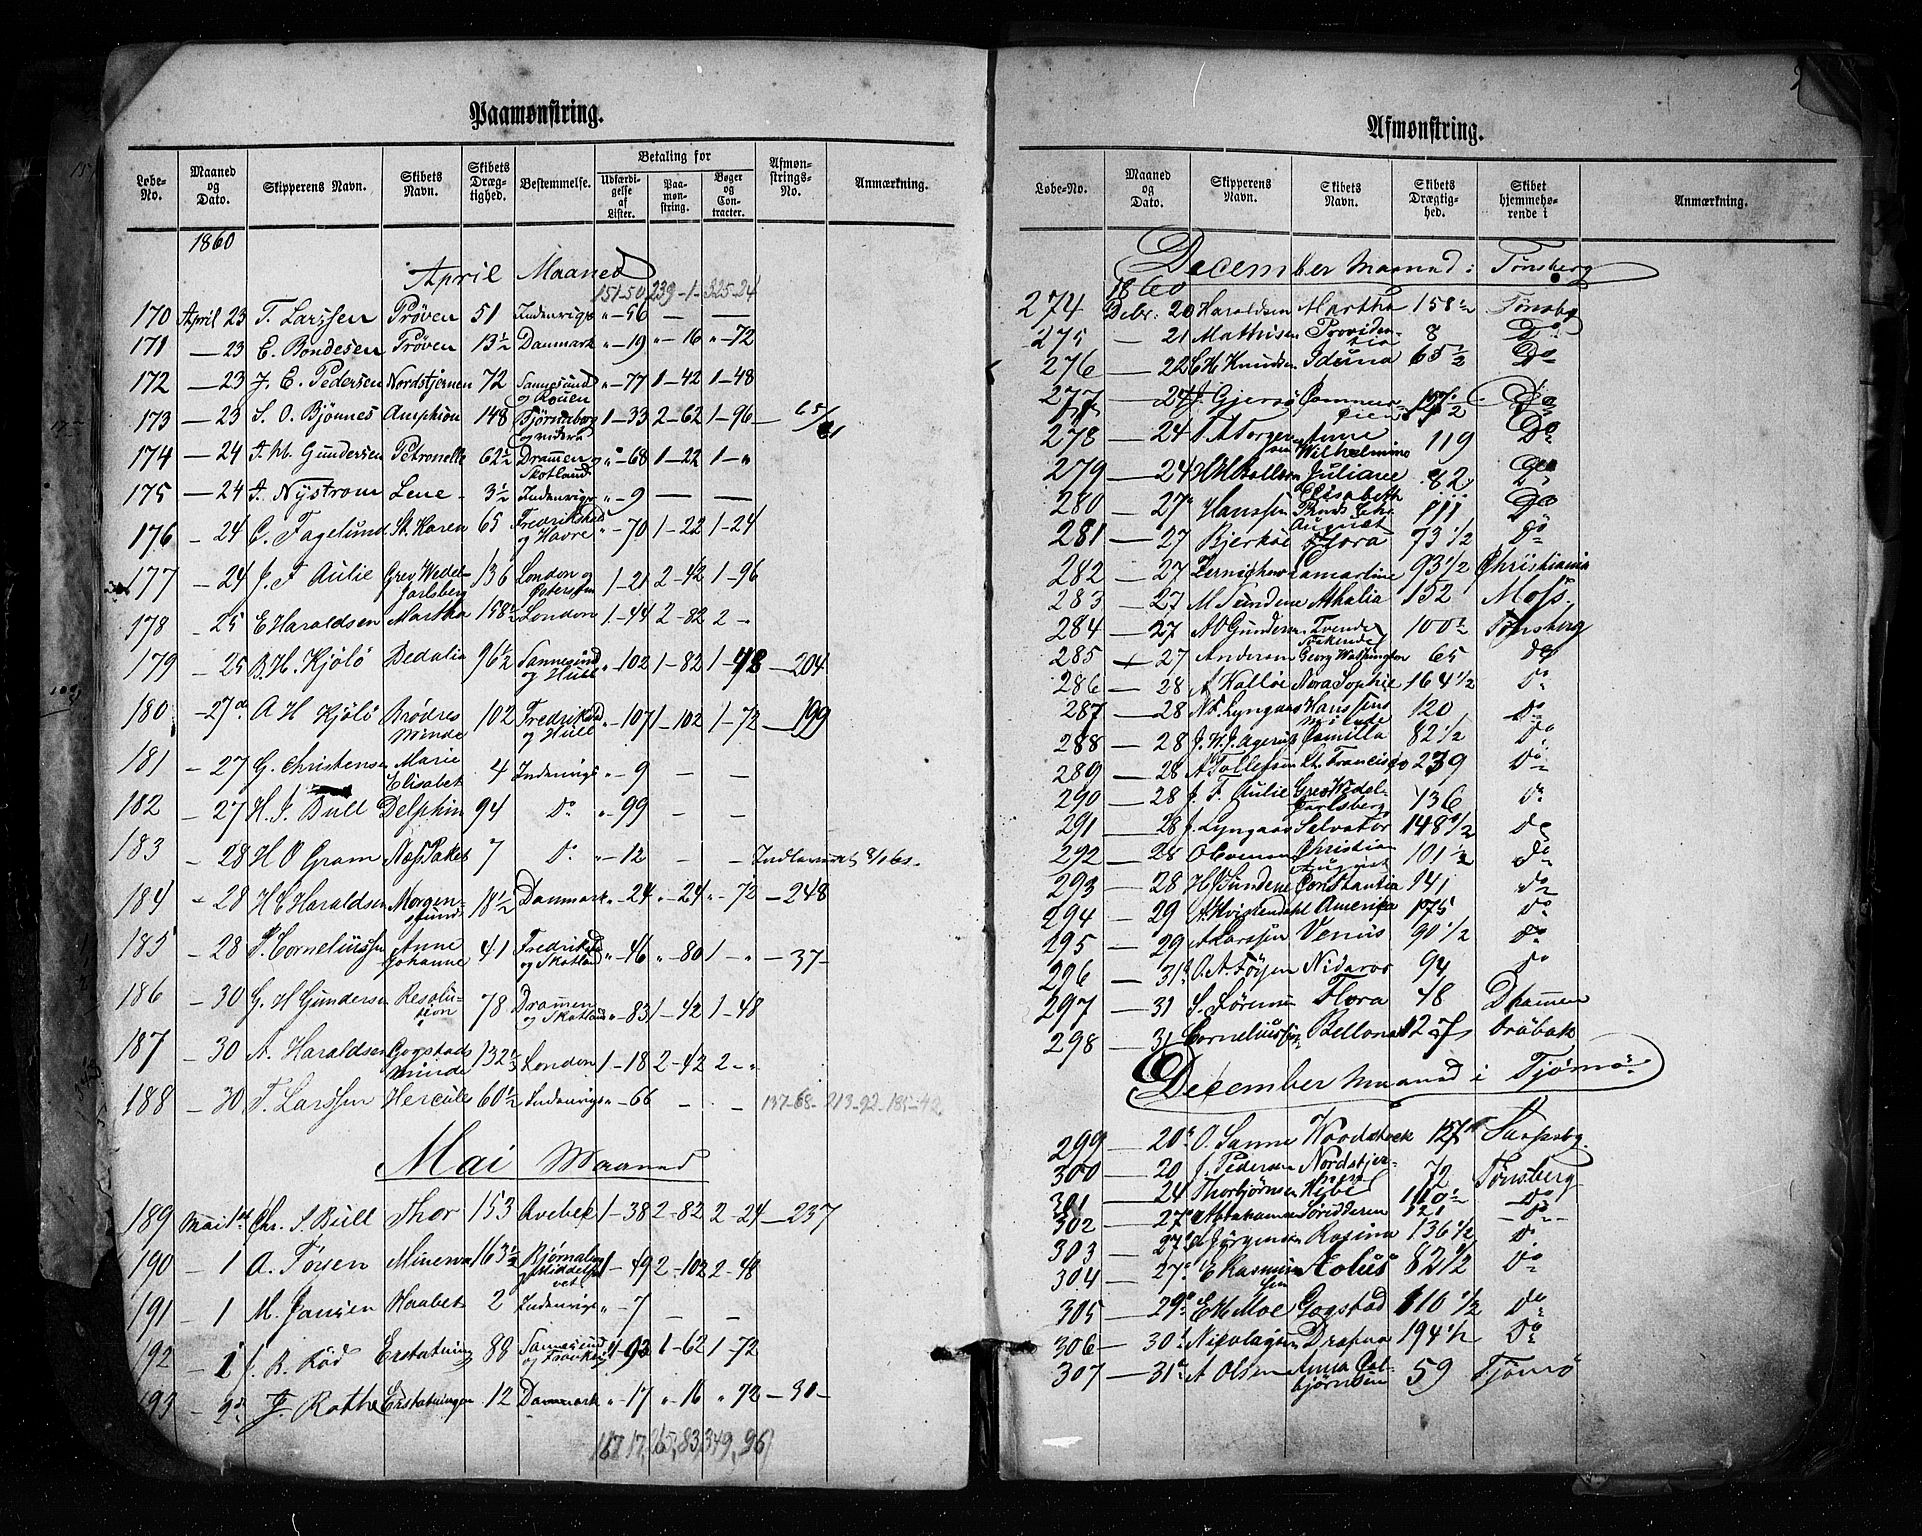 Paamønstring.
Løbe-No. Maaned og Dato. Skipperens Navn. Skibets Navn. Skibets Dræg-tighed. Bestemmelse. Betaling for Udfærdi-gelse af Lister. Paa-mon-string. Bøger og Con-tracter. Afmøn-strings-No. Anmærkning.
1860
April Maaned
151-50 239-1-325-24
170 April 23 T. Larssen Prøven 51 Indenrigs "-56 — —
171 — 23 E. Bondesen Prøven 13½ Danmark "-19 "-16 "-72
172 — 23 J. E. Pedersen Nordstjernen 72 Sannesund og Rouen "-77 1-42 1-48
173 — 23 S. O. Bjønnes Amphion 148 Bjørneborg og videre 1-33 2-62 1-96 — 65/61
174 — 24 A. M. Gundersen Petronelle 62½ Drammen og Skotland "-68 1-22 1-"
175 — 24 A. Nystrom Lene 3½ Indenrigs "-9 — —
176 — 24 C. Fagelund St. Karen 65 Fredrikstad og Havre "-70 1-22 1-24
177 — 24 J. F. Aulie Grev Wedel-Jarlsberg 136 London og Østersøen 1-21 2-42 1-96
178 — 25 E Haraldsen Martha 158½ London 1-44 2-82 2-"
179 — 25 B. H. Kjølö Dedalia 96½ Sannesund og Hull "-102 1-82 1-48 — 204
180 — 27de A H Kjölö Brödres Minde 102 Fredrikstad og Hull "-107 1-102 1-72 — 199
181 — 27 G. Christensen Marie Elisabet 4 Indenrigs "-9 — —
182 — 27 H. J. Bull Delphin 94 Do "-99
183 — 28 H O Gram Næs Paket 7 Do "-12 — —
184 — 28 H C Haraldsen Morgen-stund 18½ Danmark "-24 "-24 "-72 — 248
185 — 28 P. Corneliussen Anne Johanne 41 Fredrikstad og Skotland "-46 "-80 1-" — 37
186 — 30 G. H Gundersen Resolu-tion 78 Drammen og Skotland "-83 1-42 1-48
187 — 30 A. Haraldsen Gogstads Minde 132½ London 1-18 2-42 2-"
188 — 30 T. Larssen Hercules 60½ Indenrigs "-66 — — 137-68-213-92-185-42
Mai Maaned
189 Mai 1ste Chr. S Bull Thor 153 Qvebek 1-38 2-82 2-24 — 237
190 — 1 A. Föyen Minerva 163½ Bjørneborg og Middelhavet 1-49 2-102 2-48
191 — 1 M. Jansen Haabet 2 Indenrigs "-7 — —
192 — 1 J. R. Röd Erstatning 88 Sannesund og Frankrig "-93 1-62 1-72
193 — 2 J. Rothe Erstatningen 12 Danmark "-17 "-16 "-72 — 30
167 17, 265, 83, 349, 96
Afmønstring.
Løbe-No. Maaned og Dato. Skipperens Navn. Skibets Navn. Skibets Drægtig-hed. Skibet hjemmehø-rende i Anmærkning.
December Maaned i Tønsberg
1860
274 Decbr. 20 Haraldsen Martha 158½ Tønsbg
275 — 21 Mathisen Providen-tia 8 Do
276 — 22 C H Knudsen Iduna 65½ Do
277 — 24 J. Gjersö Do
278 — 24 T. A Jørgensen Anne Wilhelmine 119 Do
279 — 24 Juliane Elisabeth 82 Do
280 — 27 Hanssen August 111 Do
281 — 27 Bjerkøe Flora 73½ Do
282 — 27 Zernichow Lamartine 93½ Christiania
283 — 27 M Sundene Athalia 152 Moss.
284 — 27 A O Gundersen Tvende Södskende 100½ Tønsberg
285 — 27 Andersen Georg Washington 65 do
286 — 28 A Kalløe Nora Sophie 164½ do
287 — 28 N. Lyngaas Hanssens Minde 120 do
288 — 28 J. W. J. Agerup Camilla 82½ do
289 — 28 A Tollefsen St. Francisco 239 do
290 — 28 J. F. Aulie Grev Wedel-Jarlsberg 136 do
291 — 28 J. Lyngaas Salvator 148½ do
292 — 28 O Evensen Christian August 101½ do
293 — 28 H Sundene Constantia 141 do
294 — 29 A. Hvistendahl America 175 do
295 — 29 A Larssen Venus 90½ do
296 — 31 O. A. Føyen Nidaros 94 do
297 — 31 S. Sörensen Flora 48 Drammen
298 — 31 Corneliussen Bellona 125 Drøbak
December Maaned i Tjømö
299 — 20 O. Sanne Woodstock 127 Sarpsbg.
300 — 20 J. Pedersen Nordstjer-nen 72 Tønsberg
301 — 24 Thorbjørnsen Hebe 110½ Do
302 — 27 Abrahamsen Sörideren 121 Do
303 — 27 A Jørgensen Rosina 136½ Do
304 — 27 E Rasmussen Aolus 82½ Do
305 — 29 E H Moe Gogstad 110½ Do
306 — 30 Nicolaysen Drafna 194½ Do
307 — 31 A Olsen Anna Col-bjørnsen 59 Tjømö